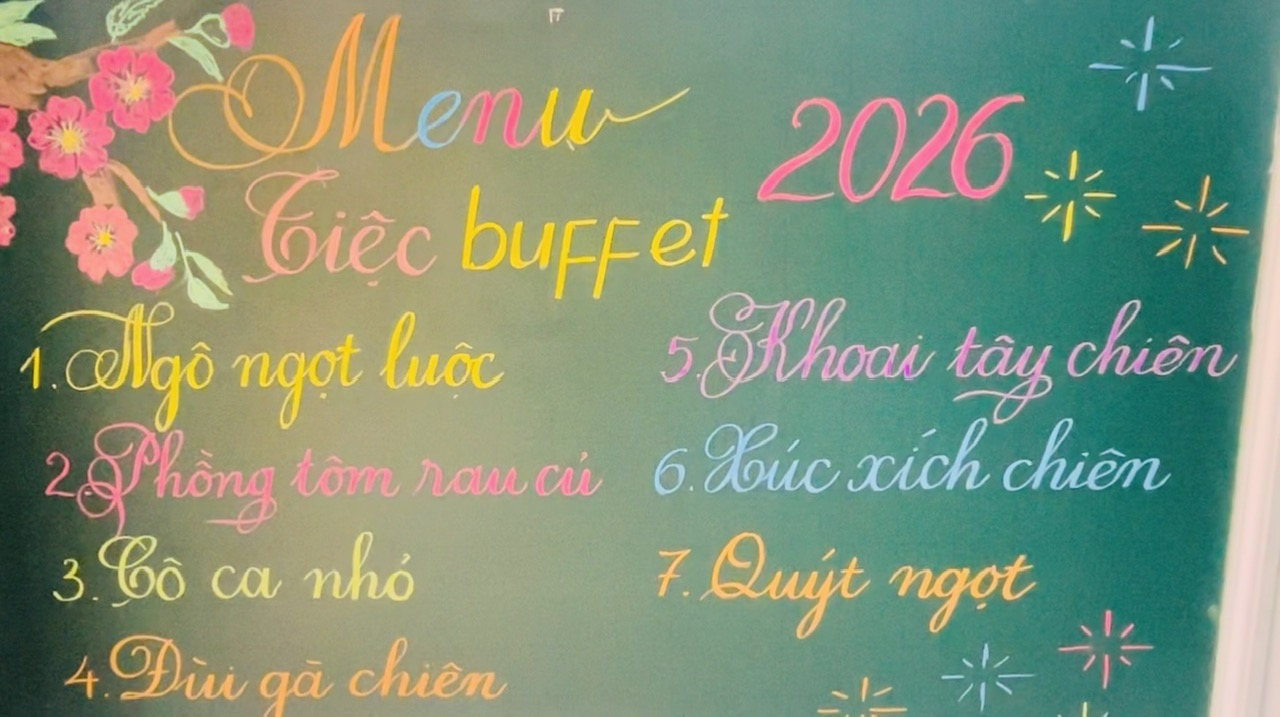 Menu
2026
Tiệc buffet
1. Ngô ngọt luộc
2. Phồng tôm rau củ
3. Cô ca nhỏ
4. Đùi gà chiên
5. Khoai tây chiên
6. Xúc xích chiên
7. Quýt ngọt